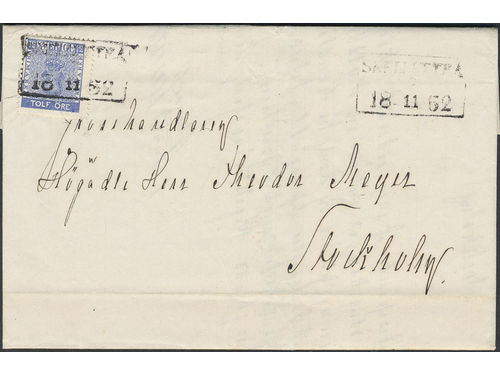 SVERIGE
TOLF ÖRE
18 11 62
18 11 62
Grosshandlaren
Högädle Herr Theodor Meyer
Stockholm